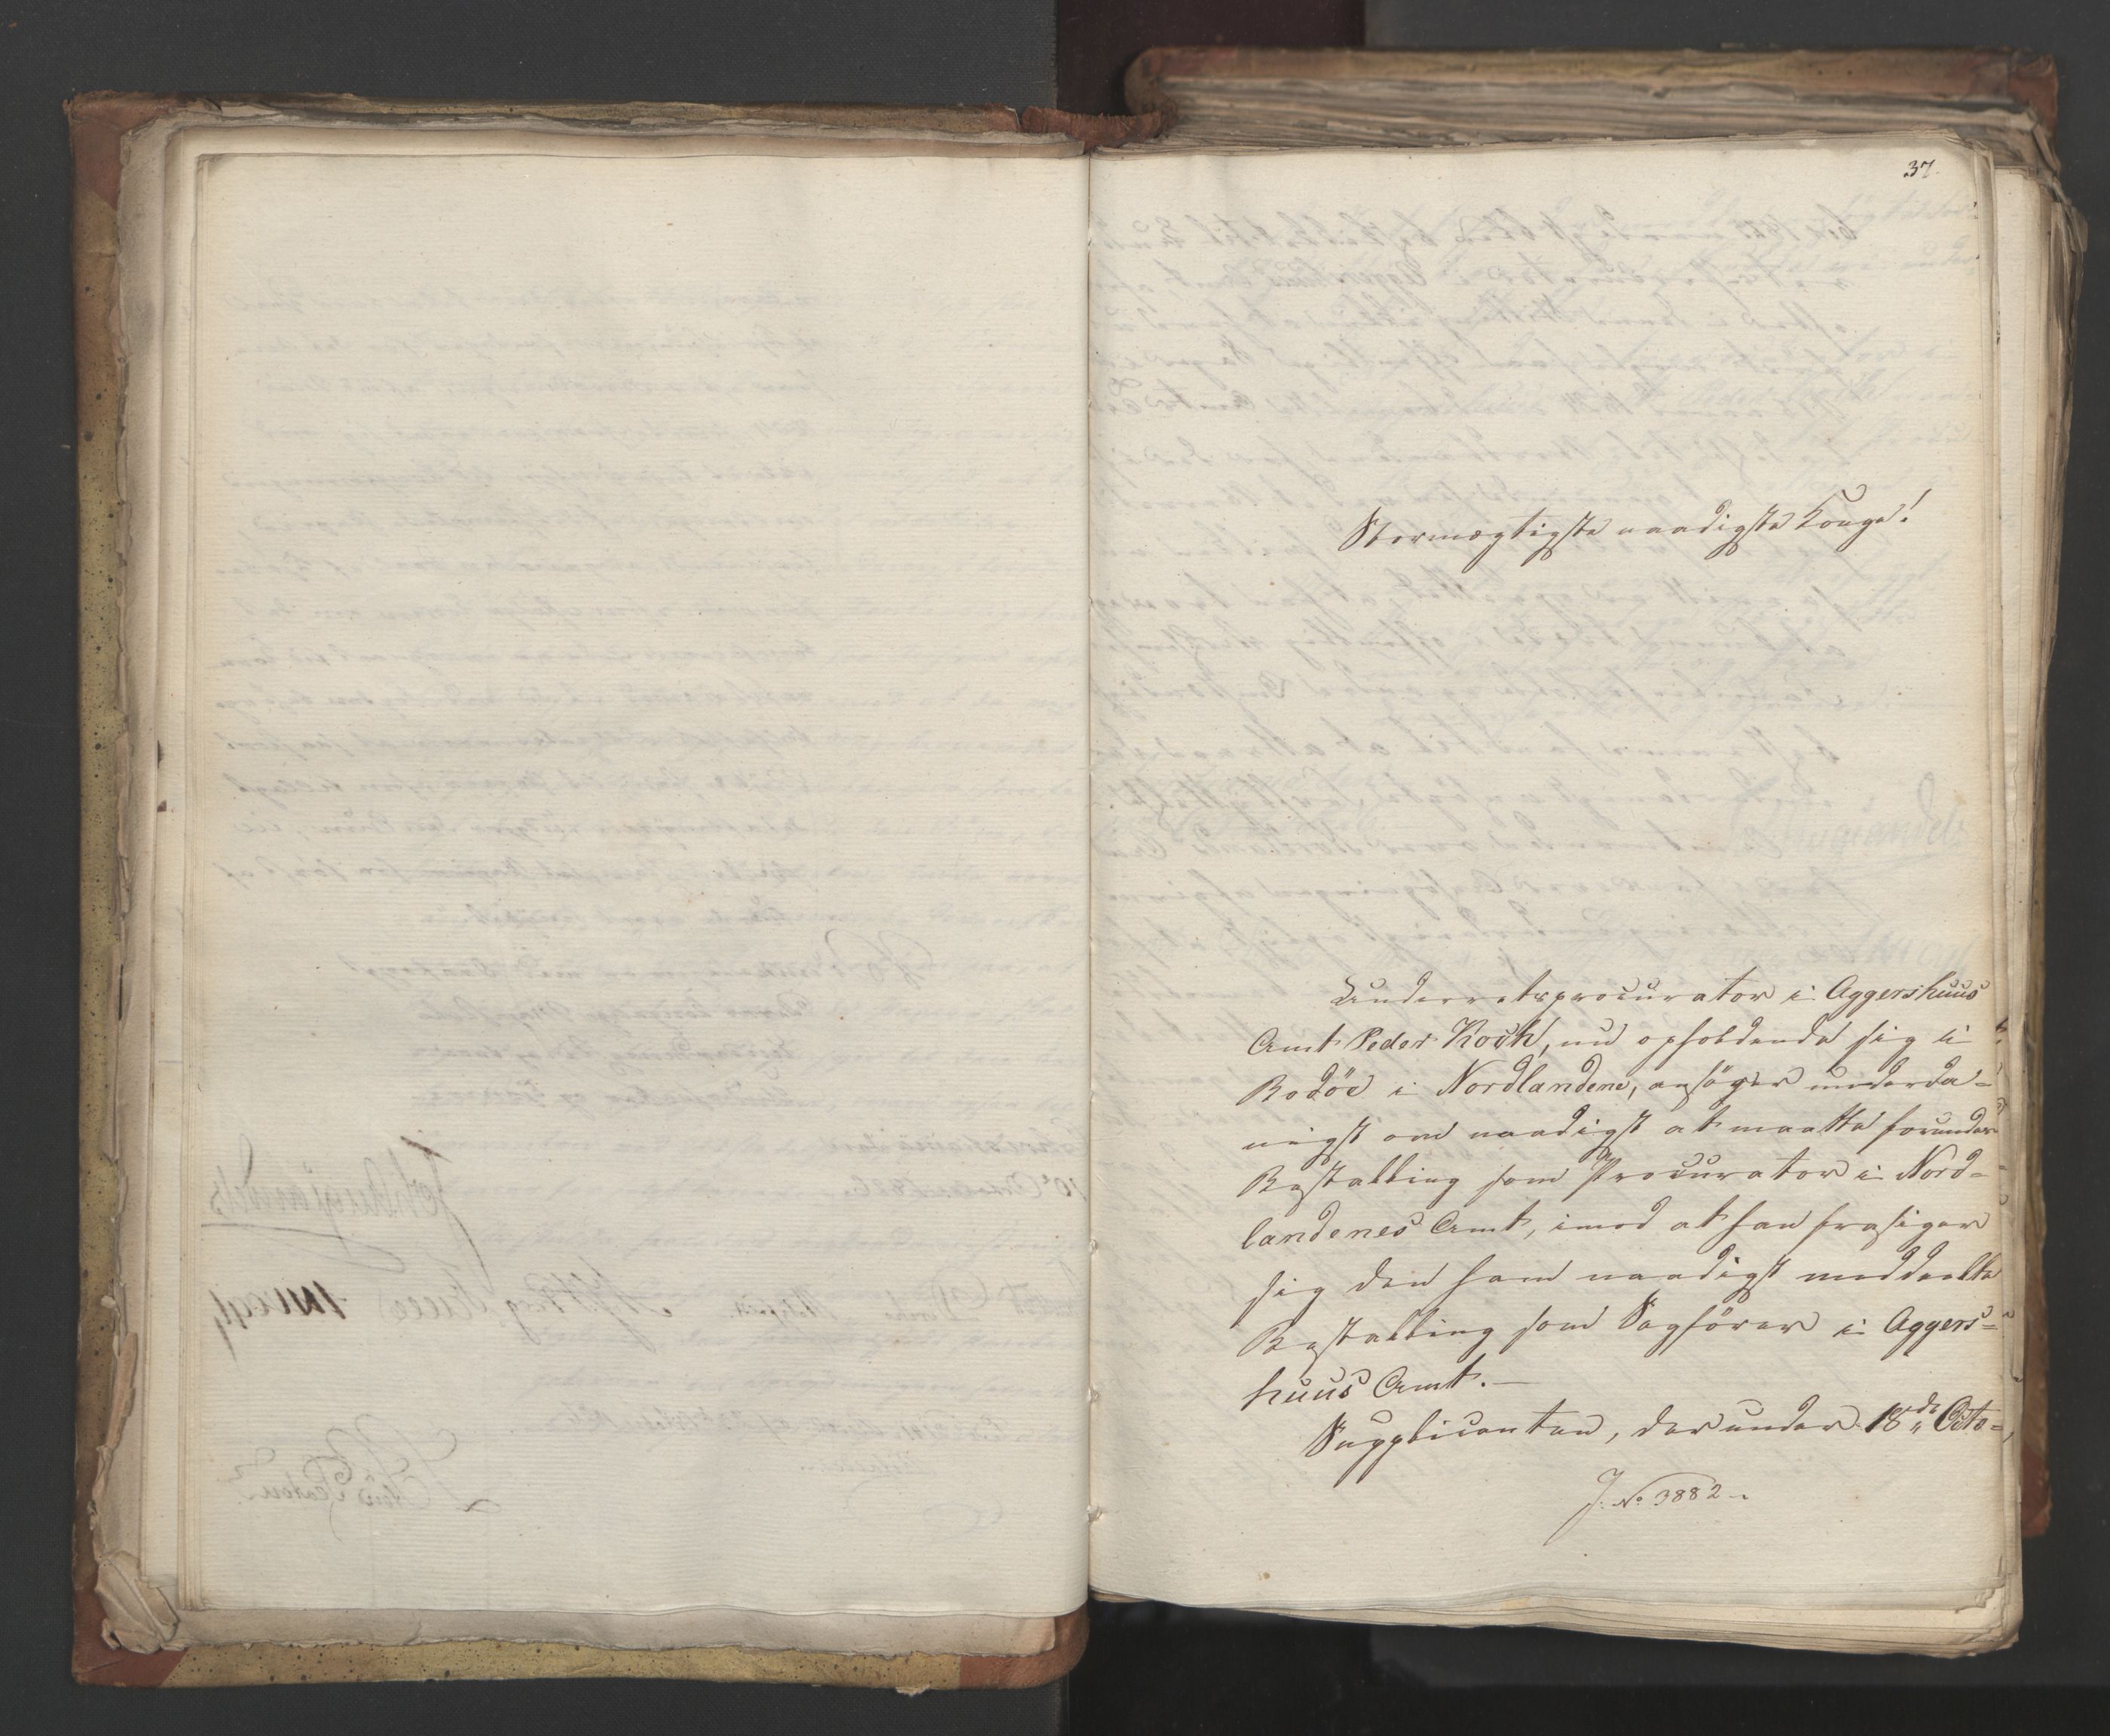 37.
Stormægtigste naadigste Konge!
Underretsprocurator i Aggershuus
Amt Peder Koch, nu opholdende sig i
Bodöe i Nordlandene, ansöger underda-
nigst om naadigst at maatte forundes
Bestalling som Procurator i Nord-
landenes Amt, imod at han frasiger
sig den ham naadigst meddeelte
Bestalling som Sagförer i Aggers-
huus Amt. —
Supplicanten, der under 18de Octo-
J. No 3882 -